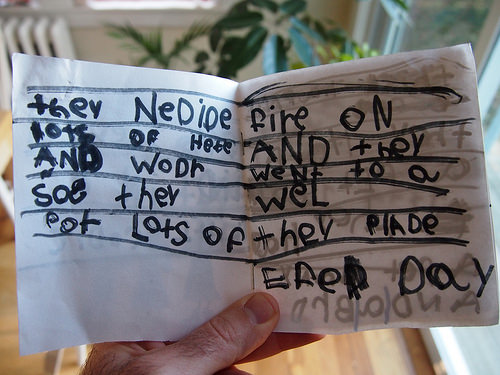 they NeDiDe
lots OF Hete
AND WODr
soe they
Pot Lots OF
fire ON
AND they
went to a
WeL
they PlaDe
EReD Day